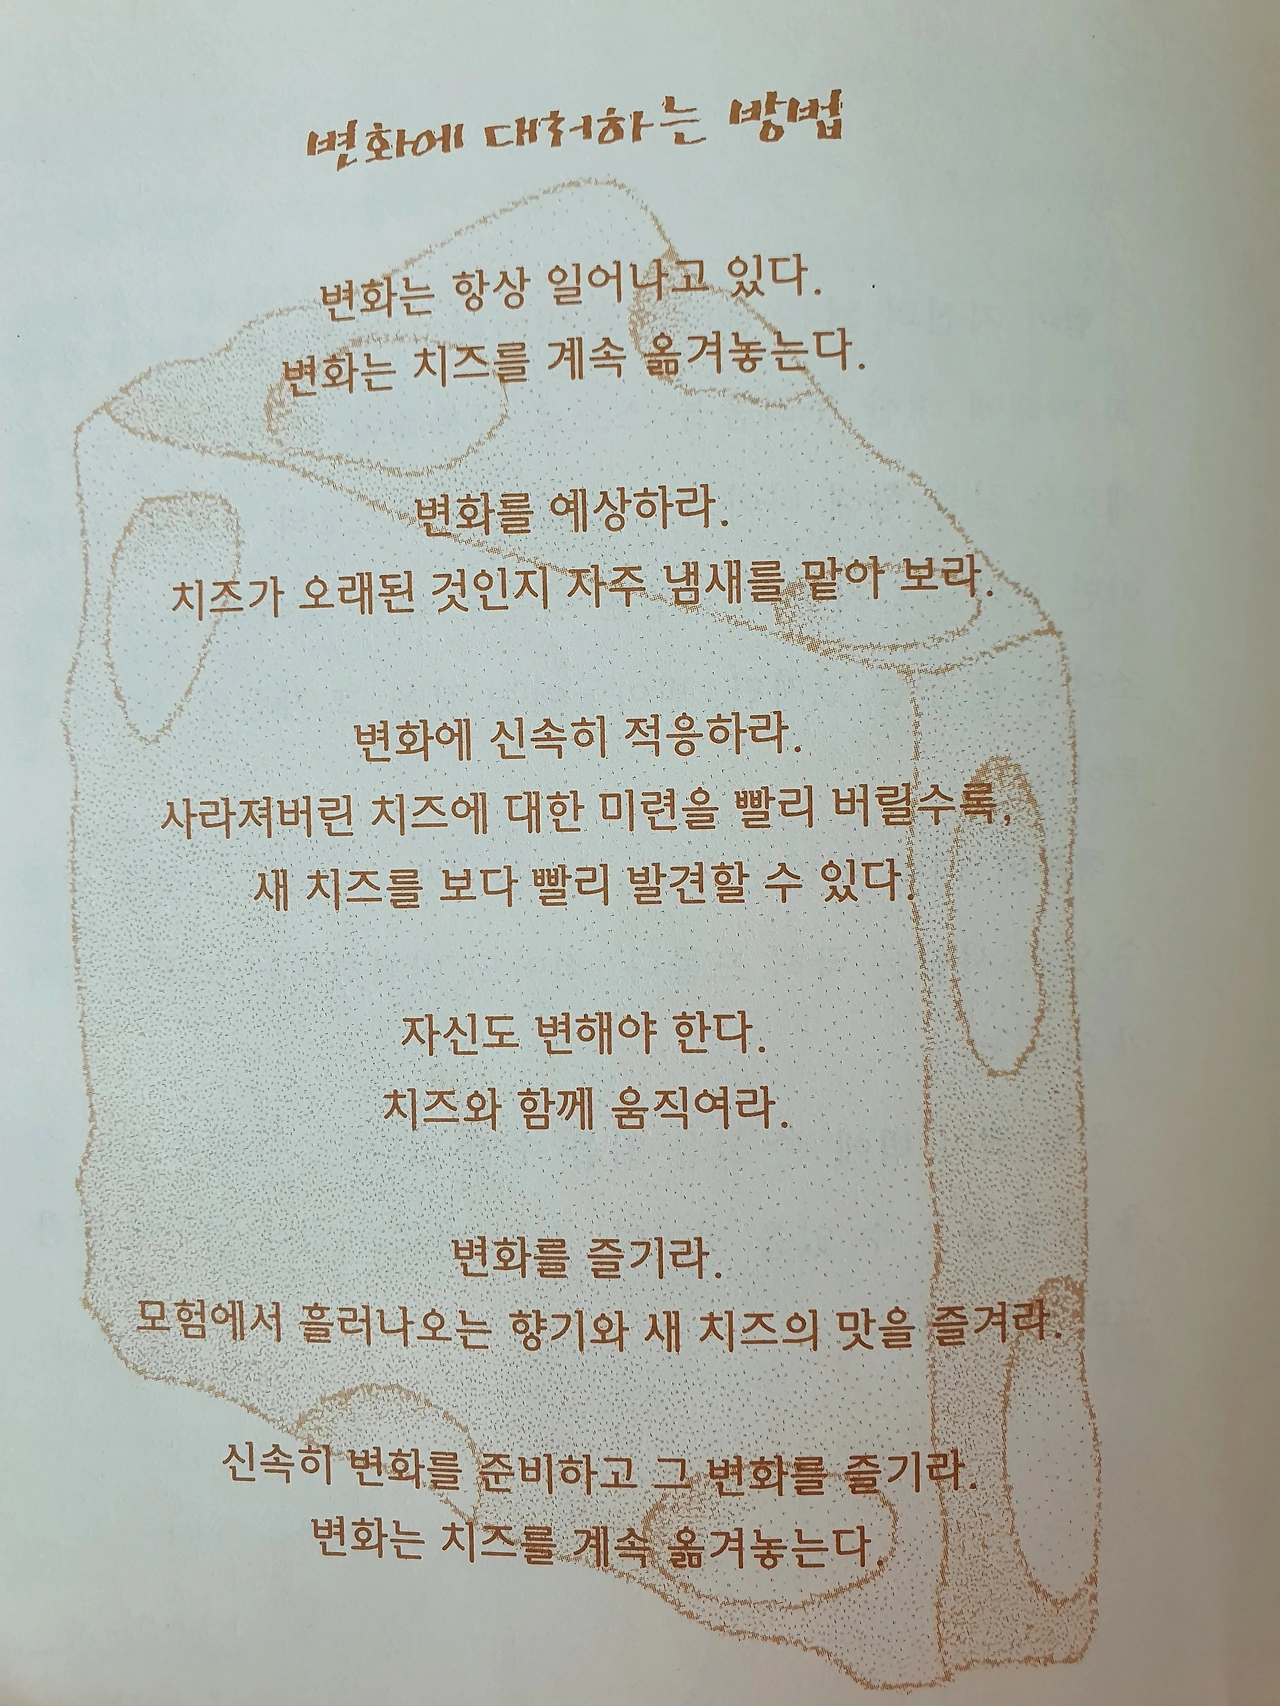 변화에 대처하는 방법
변화는 항상 일어나고 있다.
변화는 치즈를 계속 옮겨놓는다.
변화를 예상하라.
치즈가 오래된 것인지 자주 냄새를 맡아 보라.
변화에 신속히 적응하라.
사라져버린 치즈에 대한 미련을 빨리 버릴수록,
새 치즈를 보다 빨리 발견할 수 있다.
자신도 변해야 한다.
치즈와 함께 움직여라.
변화를 즐기라.
모험에서 흘러나오는 향기와 새 치즈의 맛을 즐겨라.
신속히 변화를 준비하고 그 변화를 즐기라.
변화는 치즈를 계속 옮겨놓는다.